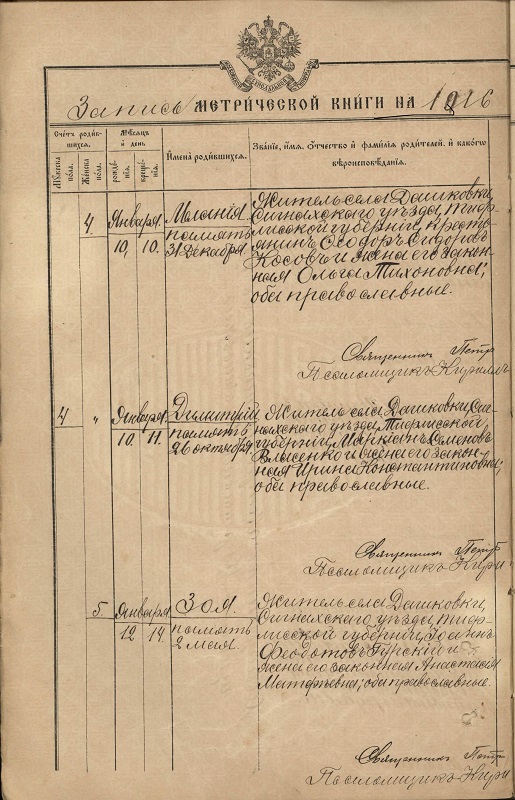 Запись МЕТРИЧЕСКОЙ КНИГИ НА 1916
Счетъ родив-
шихся.
Мужеска пола.
Женска пола.
Мѣсяцъ
и день
рожде-
нія.
креще-
нія.
Имена родившихся.
Званіе, имя, отчество и фамилія родителей, и какого
вѣроисповѣданія.
4
Января
10. 10.
Меланія
память
31 Декабря
Житель села Дашковки,
Сигнахского уѣзда, Тиф-
лисской губерніи, кресть-
янинъ Ѳеодоръ Сидоровъ
Косовъ и жена его закон-
ная Ольга Тихоновна;
оба православные.
Священникъ Петръ
Псаломщикъ Кириллъ
4
"
Января
10. 11.
Димитрій
память
26 октября
Житель села Дашковки, Сиг-
нахского уѣзда, Тифлисской
губерніи, Маркіанъ Семеновъ
Власенко и жена его закон-
ная Ирина Константиновна;
оба православные.
Священникъ Петръ
Псаломщикъ Кири
5
Января
12 14.
Зоя.
память
2 мая.
Житель села Дашковки,
Сигнахского уѣзда, Тиф-
лисской губерніи, Іоаннъ
Ѳеодотовъ Гурскій и
жена его законная Анастасія
Матѳѣевна; оба православные
Священникъ Петръ
Псаломщикъ Кири